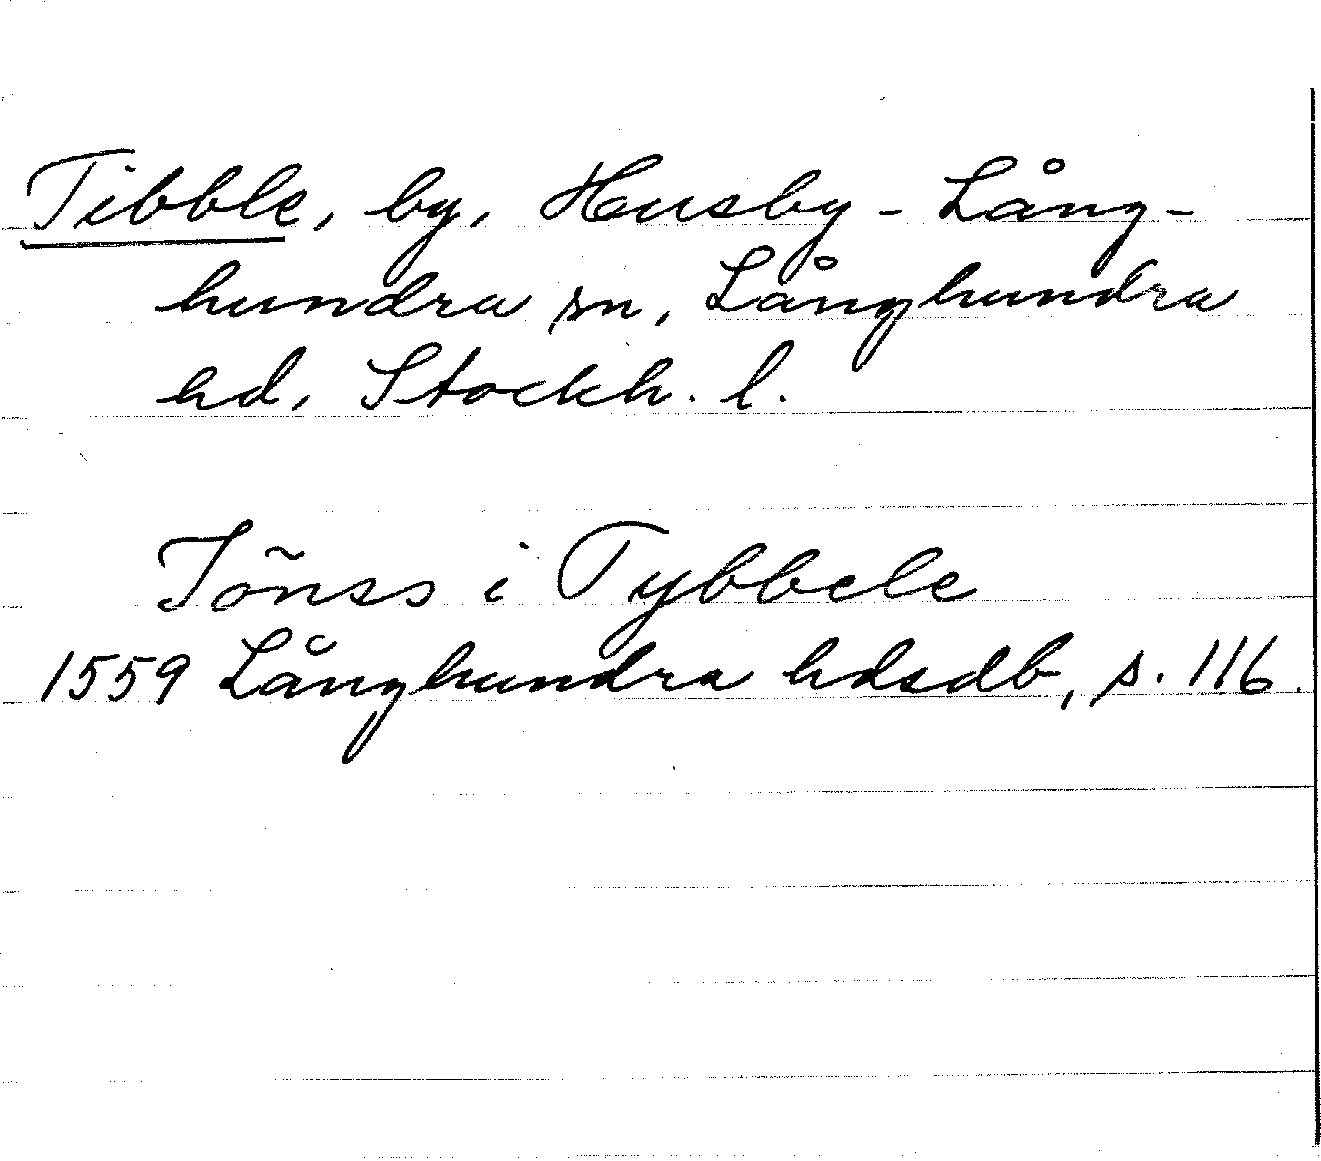 Tibble, by, Husby-Lång-
hundra sn, Långhundra
hd, Stockh. l.
Jõnss i Tybbele
1559 Långhundra hdsdb, s. 116.